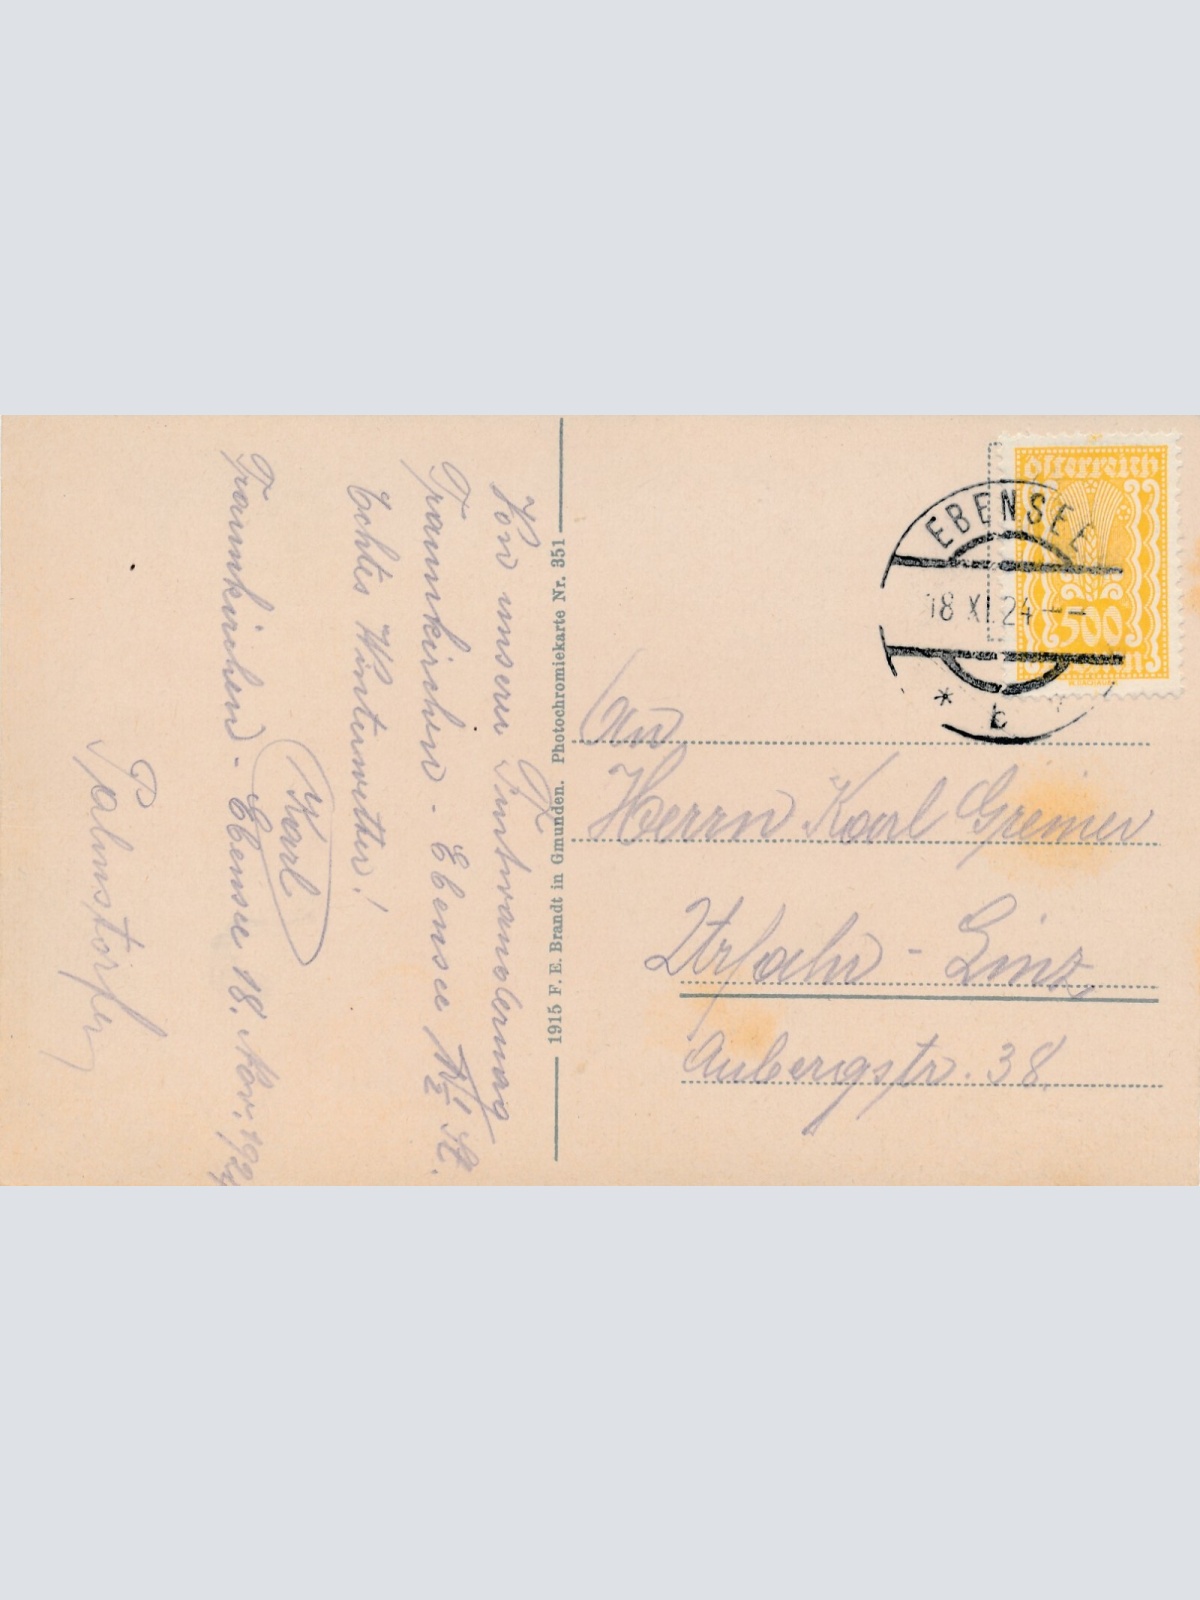 Von unserer
Traunkirchen - Ebensee
Echtes Winterwetter!
Karl
Traunkirchen - Ebensee 18. Nov. 1924
Palmstorfer
1915 F. E. Brandt in Gmunden. Photochromiekarte Nr. 351
Österreich
500
EBENSEE
18 XI. 24
* b
An
Herrn Karl Greiner
Urfahr - Linz
Aubergstr. 38.